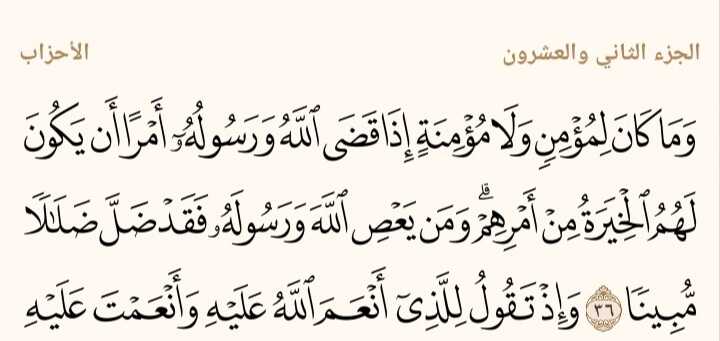 الجزء الثاني والعشرون الأحزاب
وَمَا كَانَ لِمُؤْمِنٍ وَلَا مُؤْمِنَةٍ إِذَا قَضَى ٱللَّهُ وَرَسُولُهُۥٓ أَمْرًا أَن يَكُونَ
لَهُمُ ٱلْخِيَرَةُ مِنْ أَمْرِهِمْ ۗ وَمَن يَعْصِ ٱللَّهَ وَرَسُولَهُۥ فَقَدْ ضَلَّ ضَلَـٰلًا
مُّبِينًا ٣٦ وَإِذْ تَقُولُ لِلَّذِىٓ أَنْعَمَ ٱللَّهُ عَلَيْهِ وَأَنْعَمْتَ عَلَيْهِ